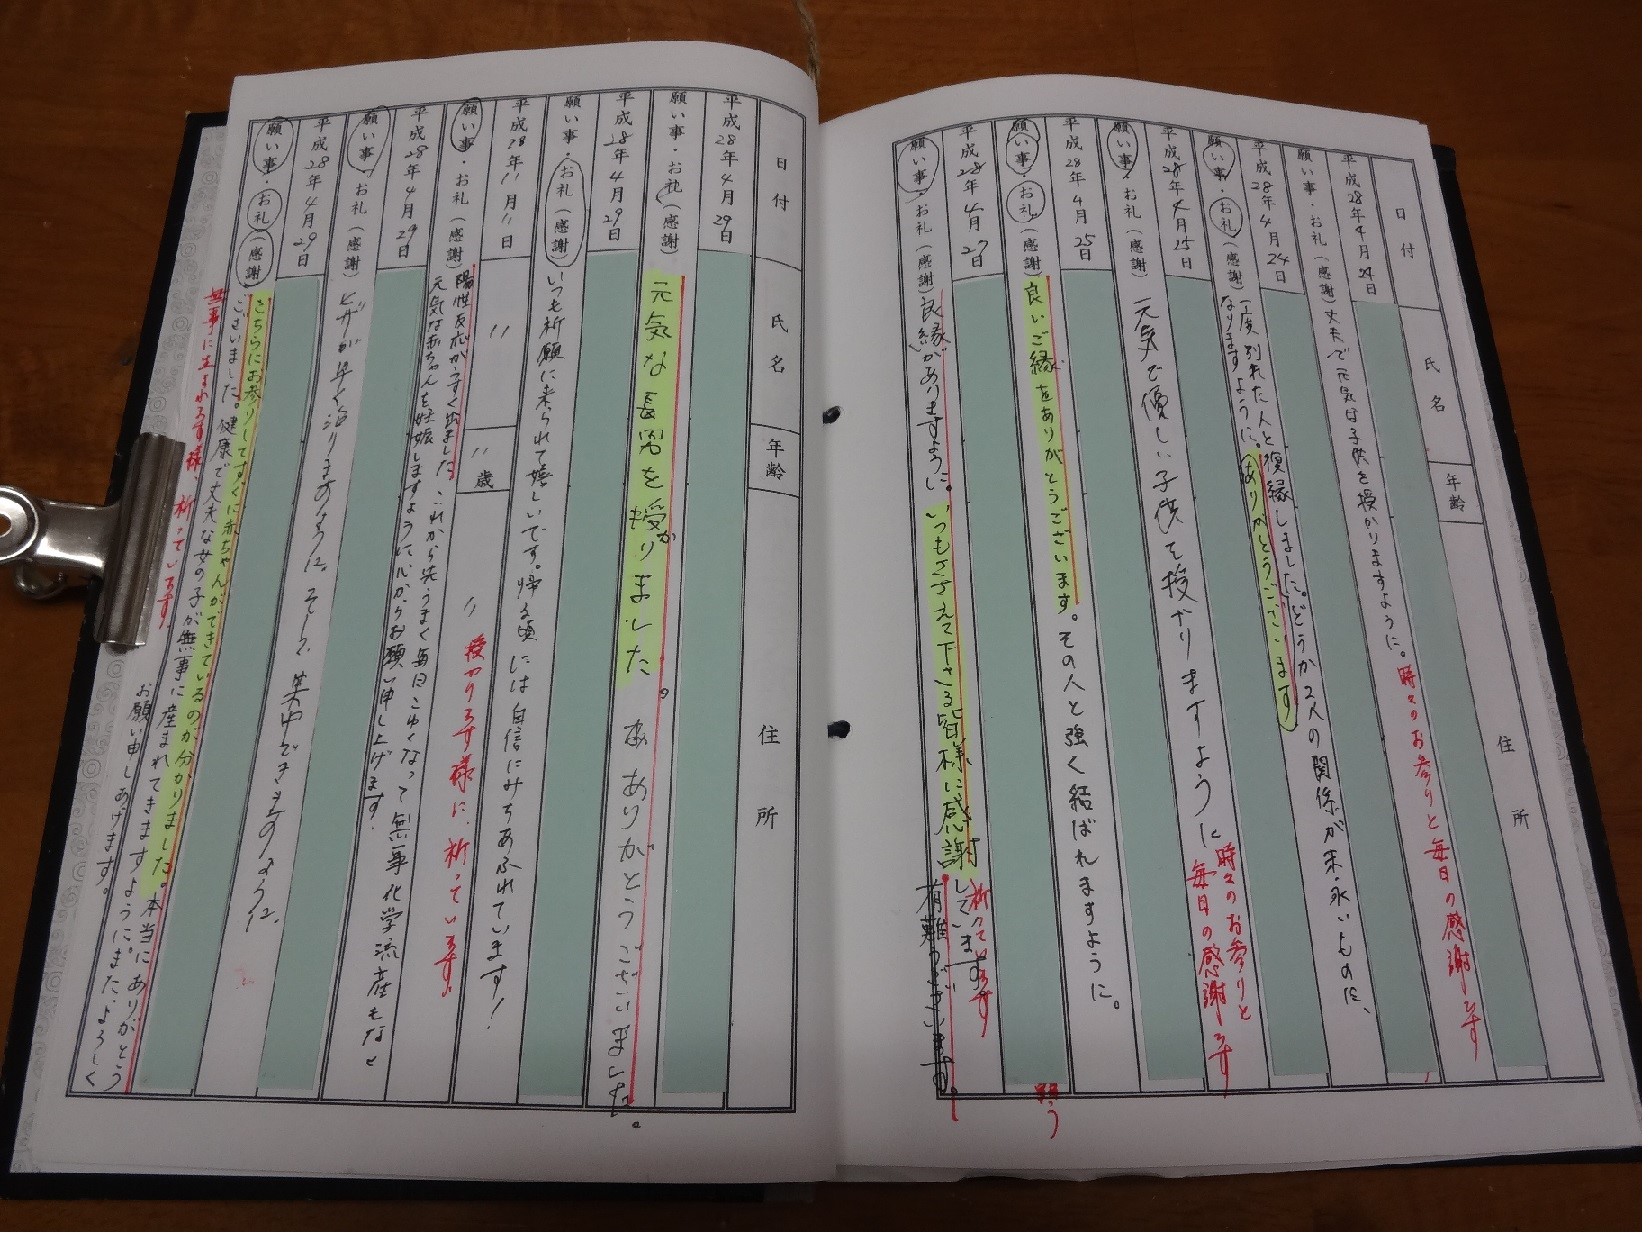 日付 氏名 年齢 住所
平成28年4月24日
願い事・お礼(感謝) 丈夫で元気な子供を授かりますように。
時々のお参りと毎日の感謝です
平成28年4月24日
願い事・お礼(感謝) 1度別れた人と復縁しました。どうか2人の関係が末永いものに、
なりますように。ありがとうございます
平成28年4月25日
願い事・お礼(感謝) 元気で優しい子供を授かりますように
時々のお参りと
毎日の感謝です
平成28年4月25日
願い事・お礼(感謝) 良いご縁をありがとうございます。その人と強く結ばれますように。
平成28年4月27日
願い事・お礼(感謝) 良縁がありますように。いつもささえて下さる皆様に感謝しています。
祈っています
有難うございます。
日付 氏名 年齢 住所
平成28年4月29日
願い事・お礼(感謝) 元気な長男を授かりました。ありがとうございました。
平成28年4月29日
願い事・お礼(感謝) いつも祈願に来られて嬉しいです。帰る頃には自信にみちあふれています!
平成28年11月11日 〃 〃歳 〃
授かります様に、祈っています。
願い事・お礼(感謝) 陽性反応がうすく出ました。これから先、うまく毎日こゆくなって無事化学流産もなく
元気な赤ちゃんを妊娠しますように心からお願い申し上げます。
平成28年4月29日
願い事・お礼(感謝) ヒザが早く治りますように。そして、集中できますように。
平成28年4月29日
願い事・お礼(感謝) こちらにお参りしてすぐに赤ちゃんができているのが分かりました。本当にありがとう
ございました。健康で丈夫な女の子が無事に産まれてきますように。また、よろしく
お願い申しあげます。
無事に生まれます様、祈っています。